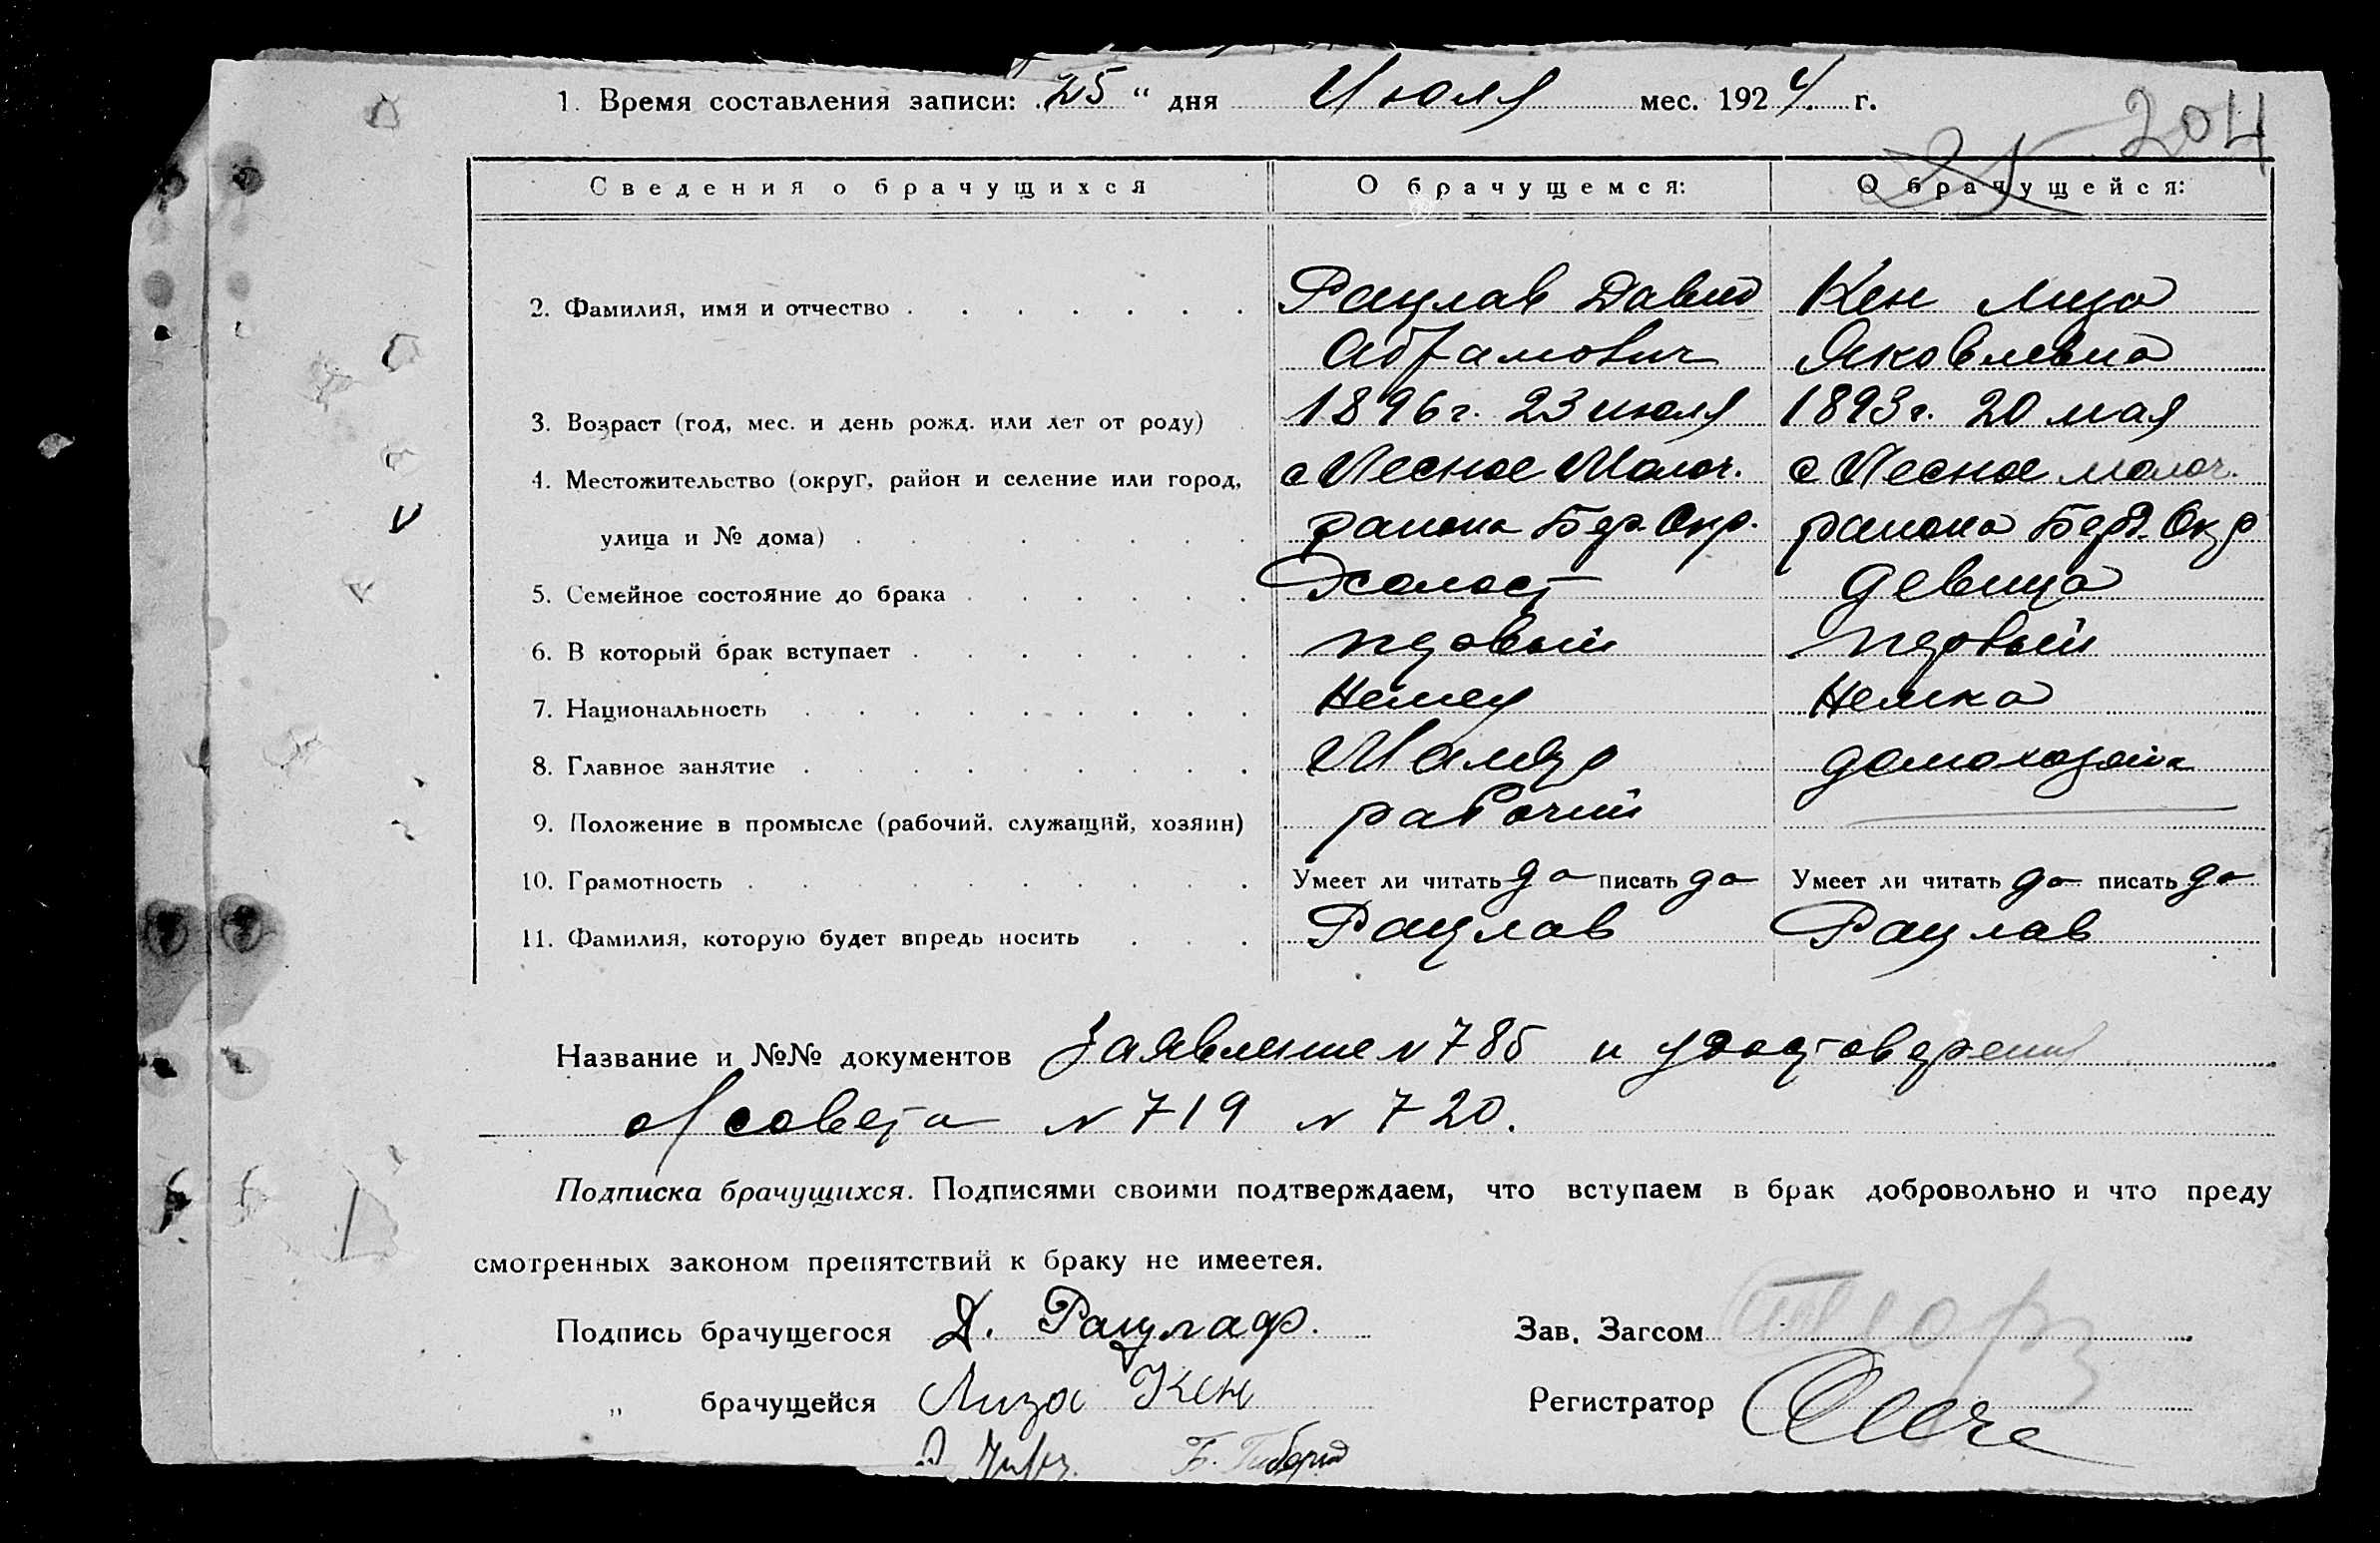 1. Время составления записи: 25 “ дня Июля мес. 1924. г.
204
Сведения о брачущихся О брачущемся: О брачущейся:
2. Фамилия, имя и отчество Рацлав Давид Кен Лиза
Абрамович Яковлевна
3. Возраст (год, мес. и день рожд. или лет от роду) 1896 г. 23 июля 1893 г. 20 мая
4. Местожительство (округ, район и селение или город, с Лесное Молоч. с Лесное молоч.
улица и № дома) района Бер. Окр. района Берд. Окр
5. Семейное состояние до брака Холост девица
6. В который брак вступает первый первый
7. Национальность Немец Немка
8. Главное занятие Маляр домохозяйка
9. Положение в промысле (рабочий, служащий, хозяин) рабочий
10. Грамотность Умеет ли читать да писать да Умеет ли читать да писать да
11. Фамилия, которую будет впредь носить Рацлав Рацлав
Название и №№ документов Заявление N 785 и удостоверения
с/совета N 719 N 720.
Подписка брачущихся. Подписями своими подтверждаем, что вступаем в брак добровольно и что преду
смотренных законом препятствий к браку не имеетея.
Подпись брачущегося Д. Рацлаф. Зав. Загсом
„ брачущейся Лиза Кен Регистратор